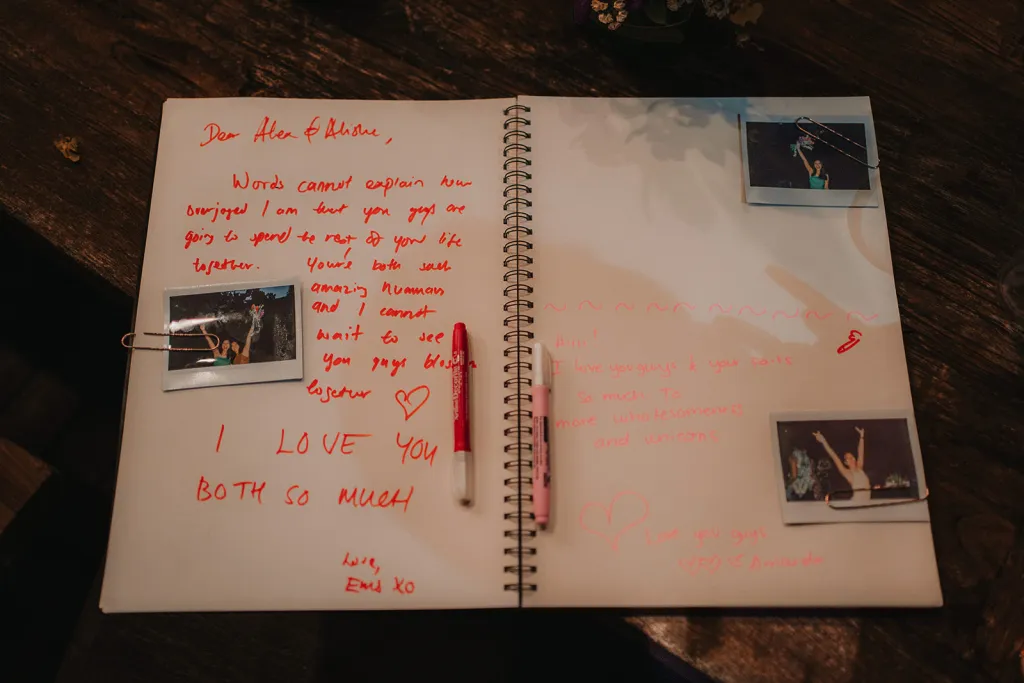 Dear Alex &
Words cannot explain how
overjoyed I am that you guys are
going to spend the rest of your life
together. You're both such
amazing humans
and I cannot
wait to see
you guys
together
I LOVE YOU
BOTH SO MUCH
Love,
Ems XO
I love you guys & your
so much. To
more
and
Love you guys